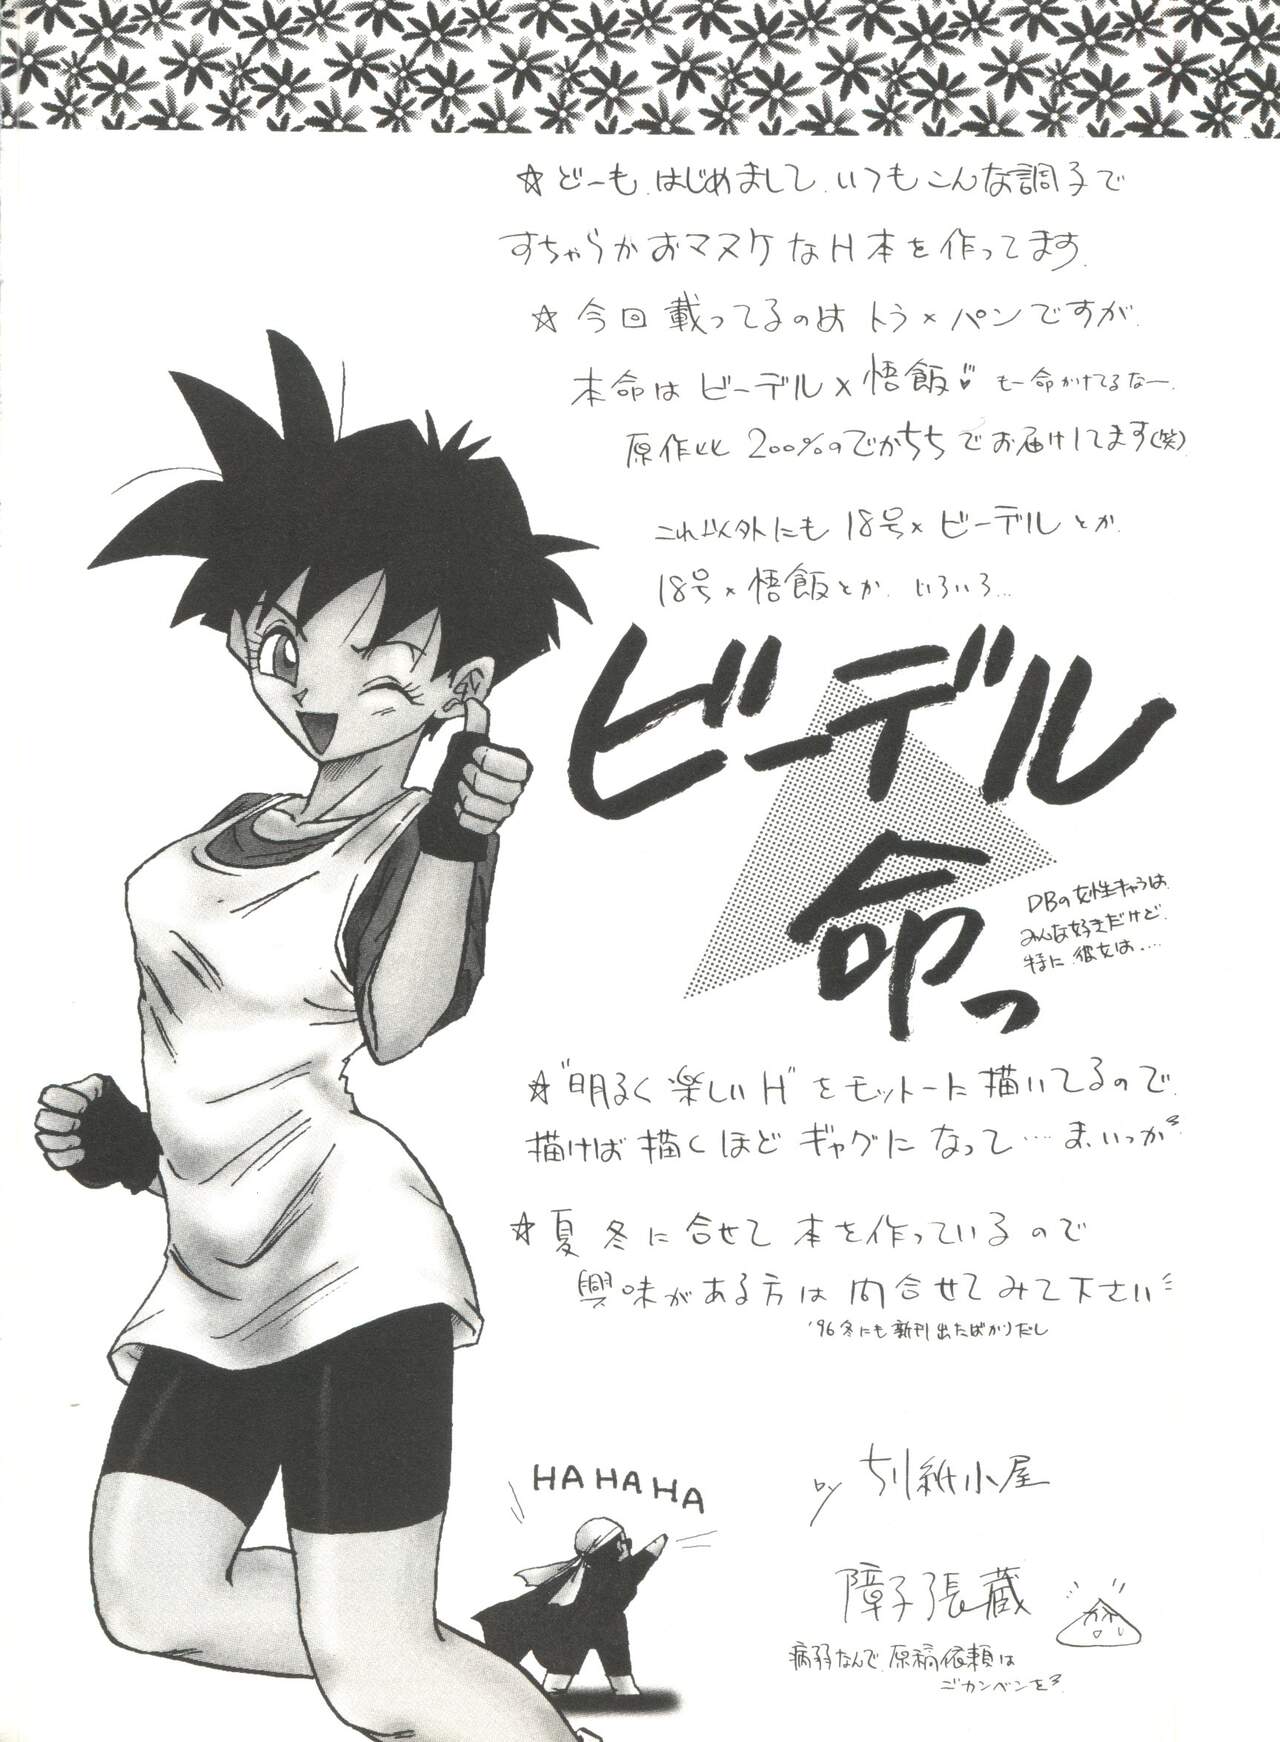 ☆どーも、はじめまして、いつもこんな調子で
すちゃらかおマヌケなH本を作ってます。
☆今回載ってるのはトラ×パンですが、
本命はビーデル×悟飯♥ もー命かけてるなー。
原作比200%のでかちちでお届けしてます(笑)
これ以外にも18号×ビーデルとか、
18号×悟飯とか、いろいろ…
ビーデル
命っ
DBの女性キャラは
みんな好きだけど、
特に彼女は‥‥
☆"明るく楽しいH"をモットーに描いてるので、
描けば描くほどギャグになって…ま、いっか
☆夏冬に合せて本を作っているので
興味がある方は問合せてみて下さい
'96冬にも新刊出たばかりだし
HA HA HA
by ちり紙小屋
障子張蔵
病弱なんで、原稿依頼は
ゴカンベンを